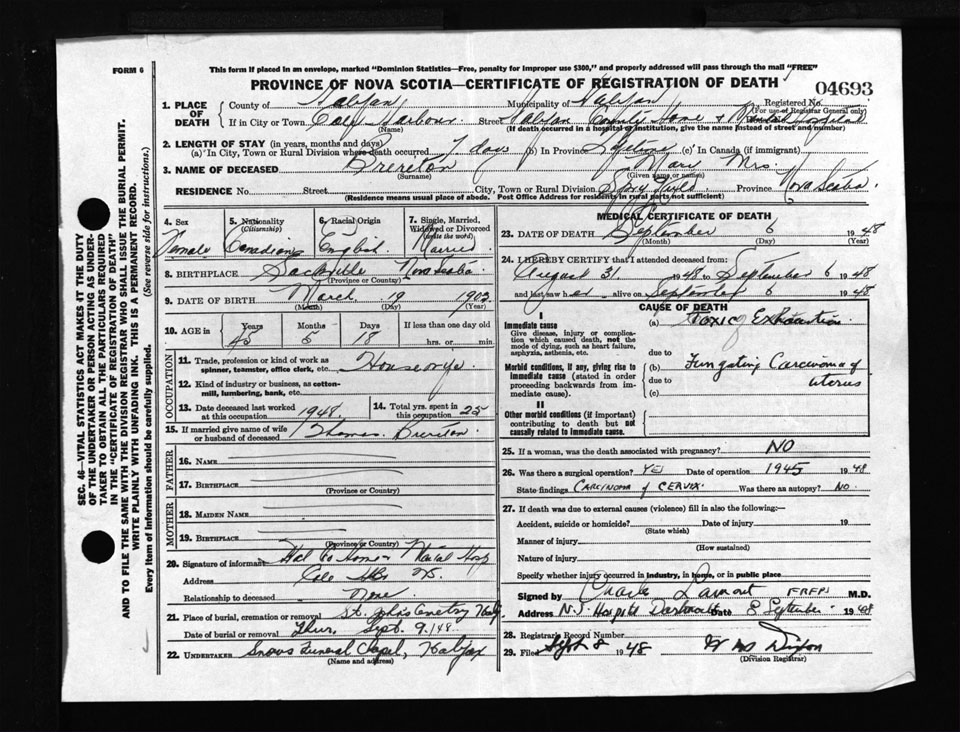 FORM 6
This form if placed in an envelope, marked "Dominion Statistics—Free, penalty for improper use $300," and properly addressed will pass through the mail "FREE"
PROVINCE OF NOVA SCOTIA—CERTIFICATE OF REGISTRATION OF DEATH
04693
1. PLACE OF DEATH
County of Halifax Municipality of Halifax Registered No.
(For use of Registrar General only)
If in City or Town Cole Harbour Street Halifax County Home & Mental Hospital
(Name) (If death occurred in a hospital or institution, give the name instead of street and number)
2. LENGTH OF STAY (in years, months and days)
(a) In City, Town or Rural Division where death occurred 7 days (b) In Province Lifetime (c) In Canada (if immigrant)
3. NAME OF DECEASED Brereton Mary Mrs.
(Surname) (Given name or names)
RESIDENCE No. Street City, Town or Rural Division Spry Field Province Nova Scotia.
(Residence means usual place of abode. Post Office Address for residents in rural parts not sufficient)
4. Sex Female
5. Nationality (Citizenship) Canadian
6. Racial Origin English
7. Single, Married, Widowed or Divorced (write the word) Married
8. BIRTHPLACE Sackville Nova Scotia.
(Province or County)
9. DATE OF BIRTH March 19 1903
(Month) (Day) (Year)
10. AGE in Years Months Days If less than one day old
45 5 18 hrs. or min.
OCCUPATION
11. Trade, profession or kind of work as spinner, teamster, office clerk, etc. Housewife
12. Kind of industry or business, as cotton-mill, lumbering, bank, etc.
13. Date deceased last worked at this occupation 1948.
14. Total yrs. spent in this occupation 25
15. If married give name of wife or husband of deceased Thomas Brereton
FATHER
16. Name
17. Birthplace
(Province or County)
MOTHER
18. Maiden Name
19. Birthplace
(Province or County)
20. Signature of informant Hal Co Home
Address Cole Hbr NS.
Relationship to deceased None
21. Place of burial, cremation or removal St. Johns Cemetery Halifax
Date of burial or removal Thur. Sept. 9. 1948
22. UNDERTAKER Snows Funeral Chapel, Halifax
(Name and address)
MEDICAL CERTIFICATE OF DEATH
23. DATE OF DEATH September 6 1948
(Month) (Day) (Year)
24. I HEREBY CERTIFY that I attended deceased from:
August 31 1948 to September 6 1948
and last saw her alive on September 6 1948
CAUSE OF DEATH
I
Immediate cause
Give disease, injury or complication which caused death, not the mode of dying, such as heart failure, asphyxia, asthenia, etc.
(a) Toxic Exhaustion
due to
Morbid conditions, if any, giving rise to immediate cause (stated in order proceeding backwards from immediate cause).
Fungating Carcinoma of uterus
due to
(c)
II
Other morbid conditions (if important) contributing to death but not causally related to immediate cause.
25. If a woman, was the death associated with pregnancy? NO
26. Was there a surgical operation? YES Date of operation 1945 1948
State findings CARCINOMA of CERVIX. Was there an autopsy? NO.
27. If death was due to external causes (violence) fill in also the following:—
Accident, suicide or homicide? Date of injury 19
(State which)
Manner of injury
(How sustained)
Nature of injury
Specify whether injury occurred in industry, in home, or in public place
Signed by Charles Lamont M.D.
Address N.S. Hospital Dartmouth Date 8 September 1948
28. Registrar's Record Number
29. Filed Sept 8 1948 Dixon
(Division Registrar)
SEC. 46—VITAL STATISTICS ACT MAKES IT THE DUTY
OF THE UNDERTAKER OR PERSON ACTING AS UNDER-
TAKER TO OBTAIN ALL THE PARTICULARS REQUIRED
IN THE "CERTIFICATE OF REGISTRATION OF DEATH"
AND TO FILE THE SAME WITH THE DIVISION REGISTRAR WHO SHALL ISSUE THE BURIAL PERMIT.
WRITE PLAINLY WITH UNFADING INK. THIS IS A PERMANENT RECORD.
Every item of information should be carefully supplied. (See reverse side for instructions.)